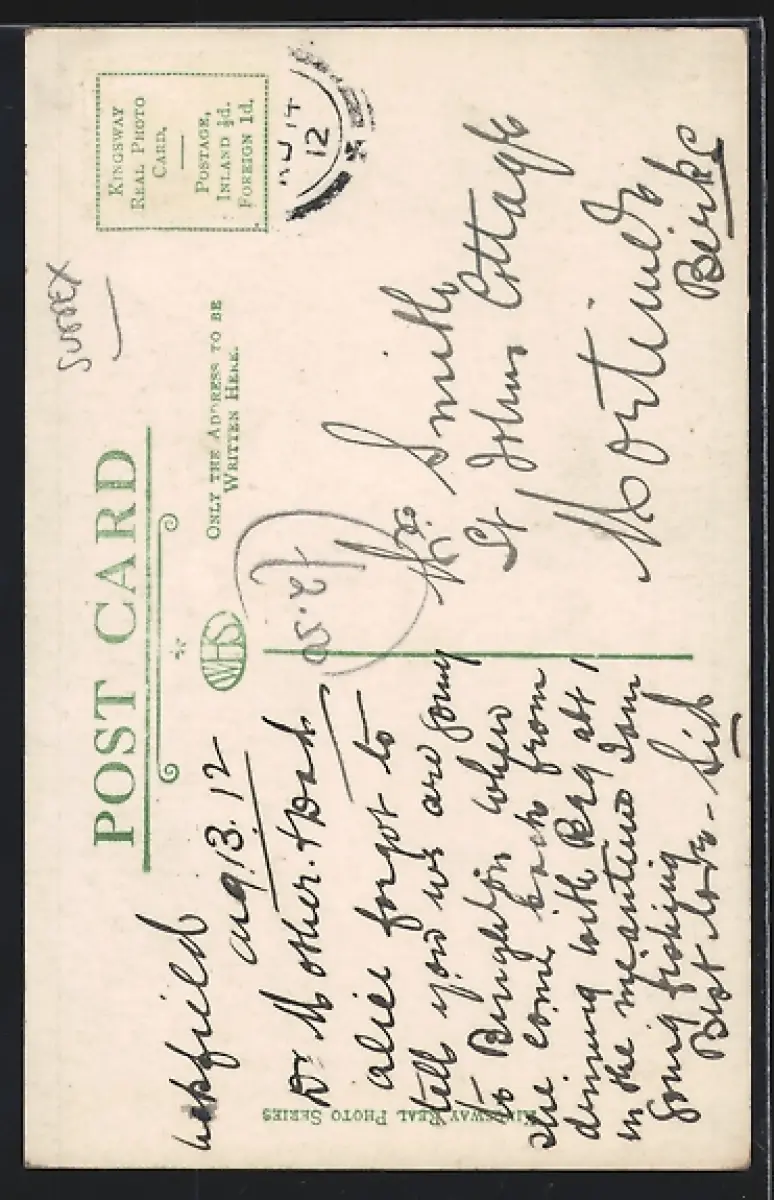 POST CARD
SUSSEX
KINGSWAY
REAL PHOTO
CARD.
POSTAGE,
INLAND ½d.
FOREIGN 1d.
14
12
WHS
ONLY THE ADDRESS TO BE
WRITTEN HERE.
£2.50
Uckfield
Aug 13. 12
Dr Mother & Dad
Alice forgot to
tell you we are going
to Brighton when
she come back from
dinning with Reg abt 1
in the meantime I am
going fishing
Best love - Sid
Mrs Smith
St Johns Cottage
Mortimer
Berks
KINGSWAY REAL PHOTO SERIES